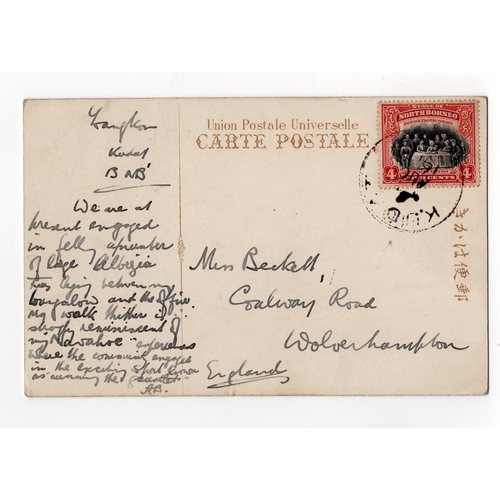 Langkon
Kudat
BNB
We are at
present engaged
in felling a number
of large Albizia
trees lying between my
bungalow and the office
my walk thither is
strongly reminiscent of
my "Navahoe" experiences
where the community engaged
in the exciting sport known
as running the gauntlet
AB.
Union Postale Universelle
CARTE POSTALE
STATE OF
NORTH BORNEO
BRITISH PROTECTORATE
4 4
CENTS
きかは便郵
Miss Beckett,
Coalway Road
Wolverhampton
England